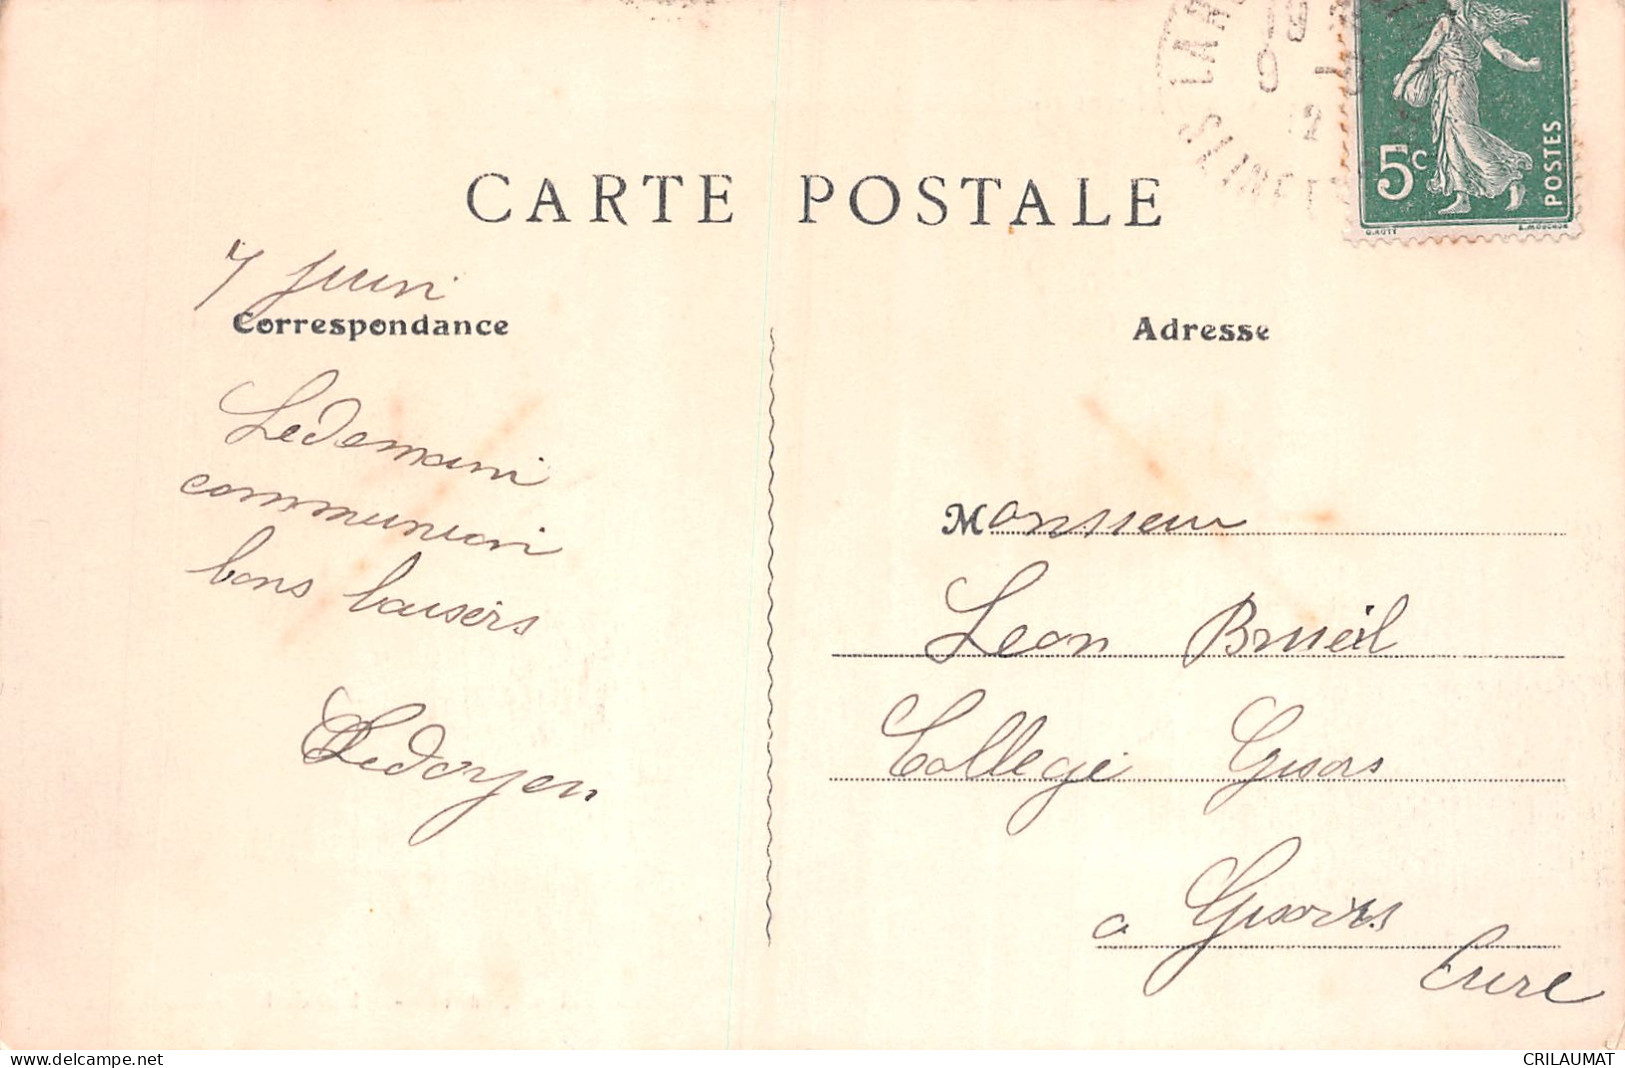 CARTE POSTALE
5c
POSTES
O. ROTY
E. MOUCHON
7 Juin
Correspondance
Adresse
Ledemain
communion
bons baisers
Ledoyen
Monsieur
Leon Brueil
College Gisors
a Gisors
Eure
CRILAUMAT
www.delcampe.net